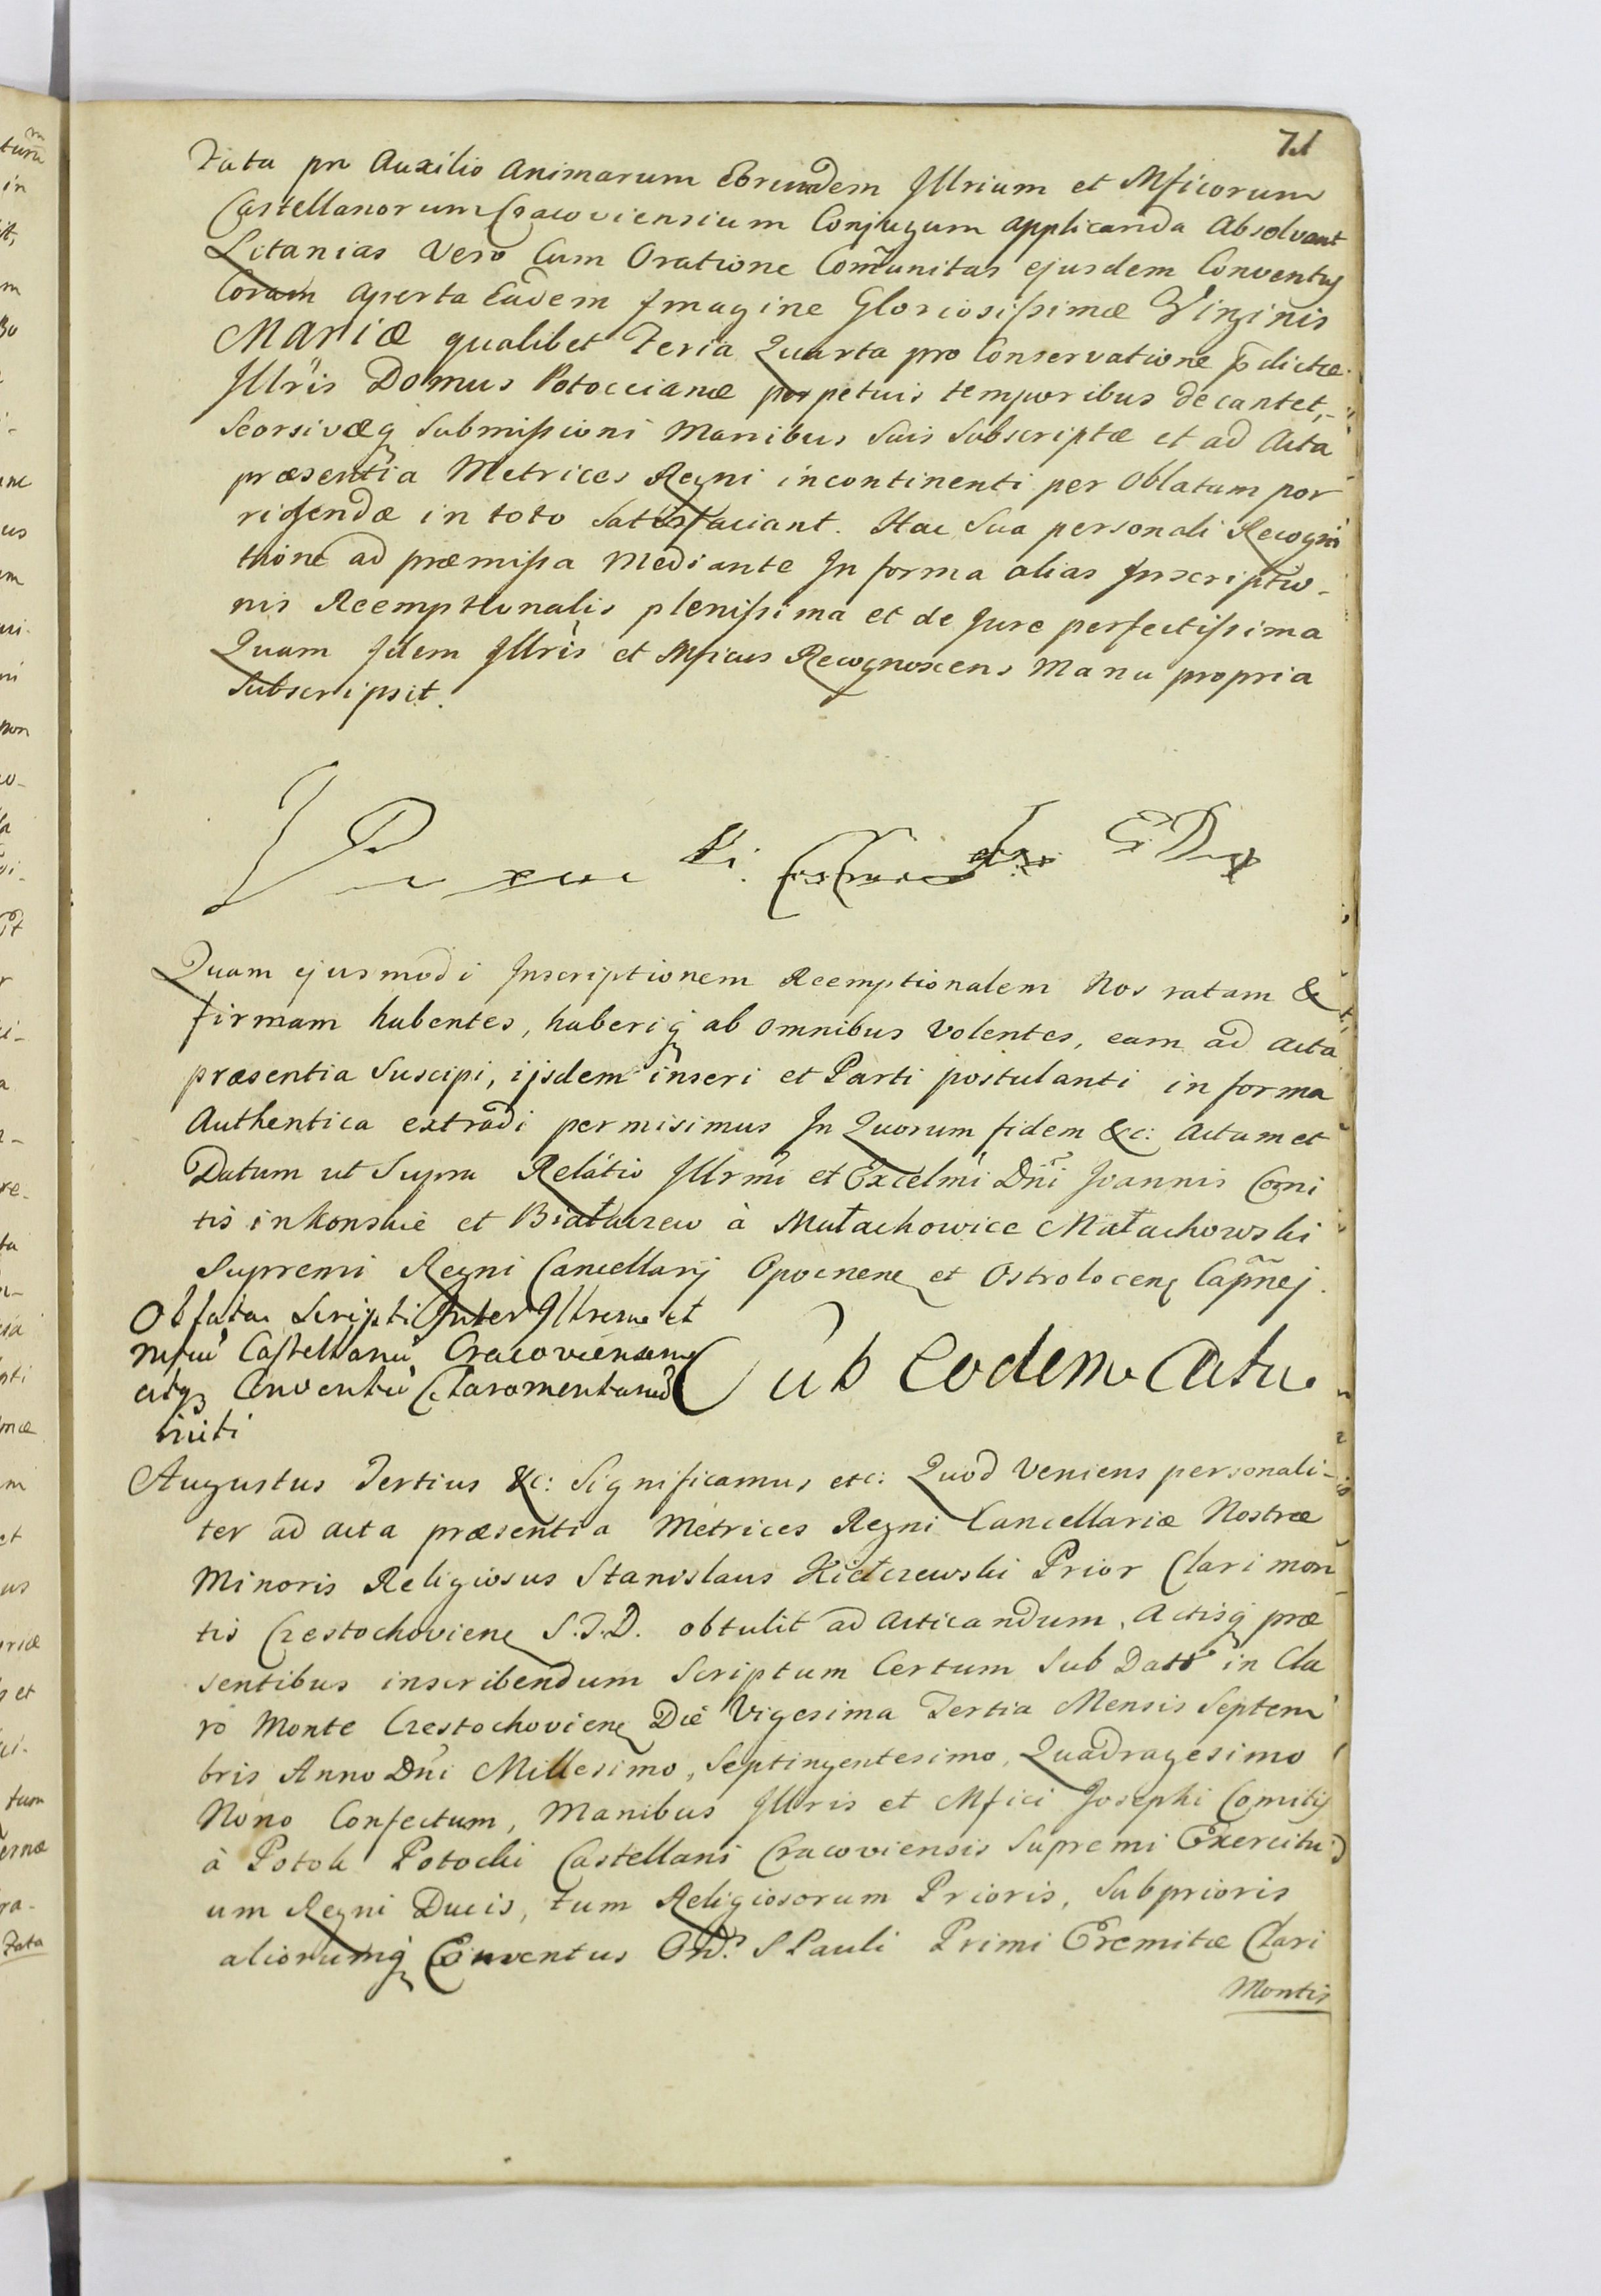 71
tata pro Auxilio Animarum Eorundem Jllrium et Mficorum
Castellanorum Cracoviensium Conjugum applicanda Absolvant
Litanias Vero Cum Oratione Com̃unitas ejusdem Conventus
Coram Aperta Eadem Jmagine Gloriosissimæ Virginis
MARIÆ qualibet Feria Quarta pro Conservatione p̄dictæ
Jllris Domus Potoccianæ perpetuis temporibus decantet,
Seorsivæq Submissioni Manibus Suis Subscriptæ et ad Acta
præsentia Metrices Regni incontinenti per Oblatam por
rigendæ in toto Satisfaciant. Hac Sua personali Recogni
tione ad præmissa Mediante Jn forma alias Jnscriptio-
nis Reemptionalis plenissima et de Jure perfectissima
Quam Jdem Jllris et Mficus Recognoscens Manu propria
Subscripsit.
Quam ejusmodi Jnscriptionem Reemptionalem Nos ratam &
firmam habentes, haberiq ab omnibus Volentes, eam ad Acta
præsentia Suscipi, ijsdem inseri et Parti postulanti in forma
Authentica extradi permisimus Jn Quorum fidem &c: Actum et
Datum ut Supra Relatio Jllrmi et Excelmi Dñi Joannis Comi
tis in Konskie et Białaczew à Małachowice Małachowski
Supremi Regni Cancellarij Opocnenę et Ostrolocenę Capñej.
Oblata Scripti Jnter Jllrem et
mficũ Castellanũ Cracoviensem
atq Conventũ Claromontanũ
initi
Sub Eodem Actu
Augustus Tertius &c: Significamus etc: Quod Veniens personali-
ter ad acta præsentia Metrices Regni Cancellariæ Nostræ
Minoris Religiosus Stanislaus Kiełczewski Prior Clari mon
tis Czestochovienę S.T.D. obtulit ad Acticandum, Actisq præ
sentibus inscribendum Scriptum Certum Sub Dato in Cla
ro Monte Czestochovienę Die Vigesima Tertia Mensis Septem
bris Anno Dñi Millesimo, Septingentesimo, Quadragesimo
Nono Confectum, Manibus Jllris et Mfici Josephi Comitis
à Potok Potocki Castellani Cracoviensis Supremi Exercitu
um Regni Ducis, tum Religiosorum Prioris, Subprioris
aliorumq Conventus Ord. S Pauli Primi Eremitæ Clari
Montis